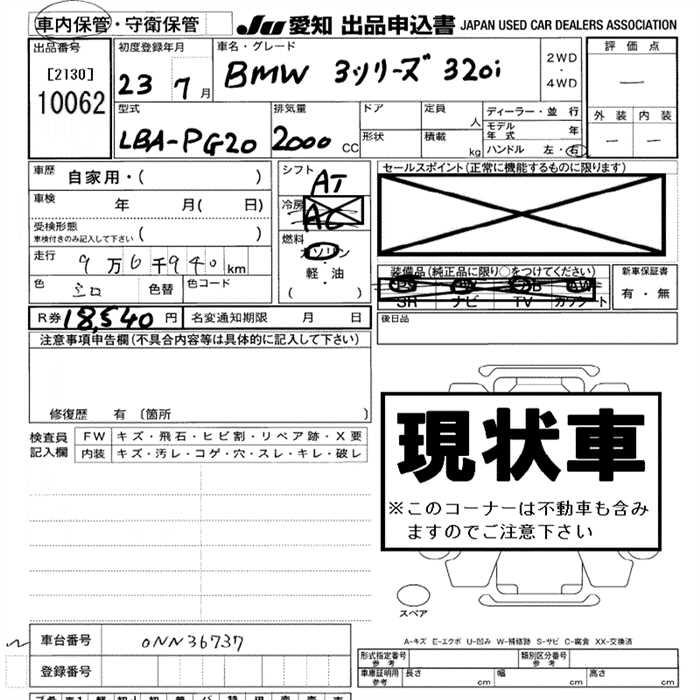 車内保管・守衛保管
JU 愛知 出品申込書 JAPAN USED CAR DEALERS ASSOCIATION
出品番号
[2130]
10062
初度登録年月
23 7月
車名・グレード
BMW 3シリーズ 320i
2WD
・
4WD
評価点
ー
外装 内装
ー ー
型式
LBA-PG20
排気量
2000 cc
ドア
形状
定員 人
積載 kg
ディーラー・並行
モデル年式 年
ハンドル 左・右
車歴 自家用・( )
車検 年 月( 日)
受検形態
車検付きのみ記入して下さい ( )
走行 9万6千940km
色 色替 色コード
シフト AT
冷房 AC
燃料 ガソリン
・
軽・油
( )
セールスポイント(正常に機能するものに限ります)
装備品(純正品に限り○をつけてください)
PS PW AW
SR ナビ TV カワシート
新車保証書
有・無
R券 18,540 円 名変通知期限 月 日
後日品
注意事項申告欄(不具合内容等は具体的に記入して下さい)
修復歴 有 〔箇所 〕
検査員記入欄
FW キズ・飛石・ヒビ割・リペア跡・X要
内装 キズ・汚レ・コゲ・穴・スレ・キレ・破レ
現状車
※このコーナーは不動車も含み
ますのでご注意下さい
スペア
A-キズ E-エクボ U-凹み W-補修跡 S-サビ C-腐食 XX-交換済
車台番号 0NN36737
登録番号
形式指定番号 参考
類別区分番号 参考
車庫証明用 参考 長さ cm 幅 cm 高さ cm